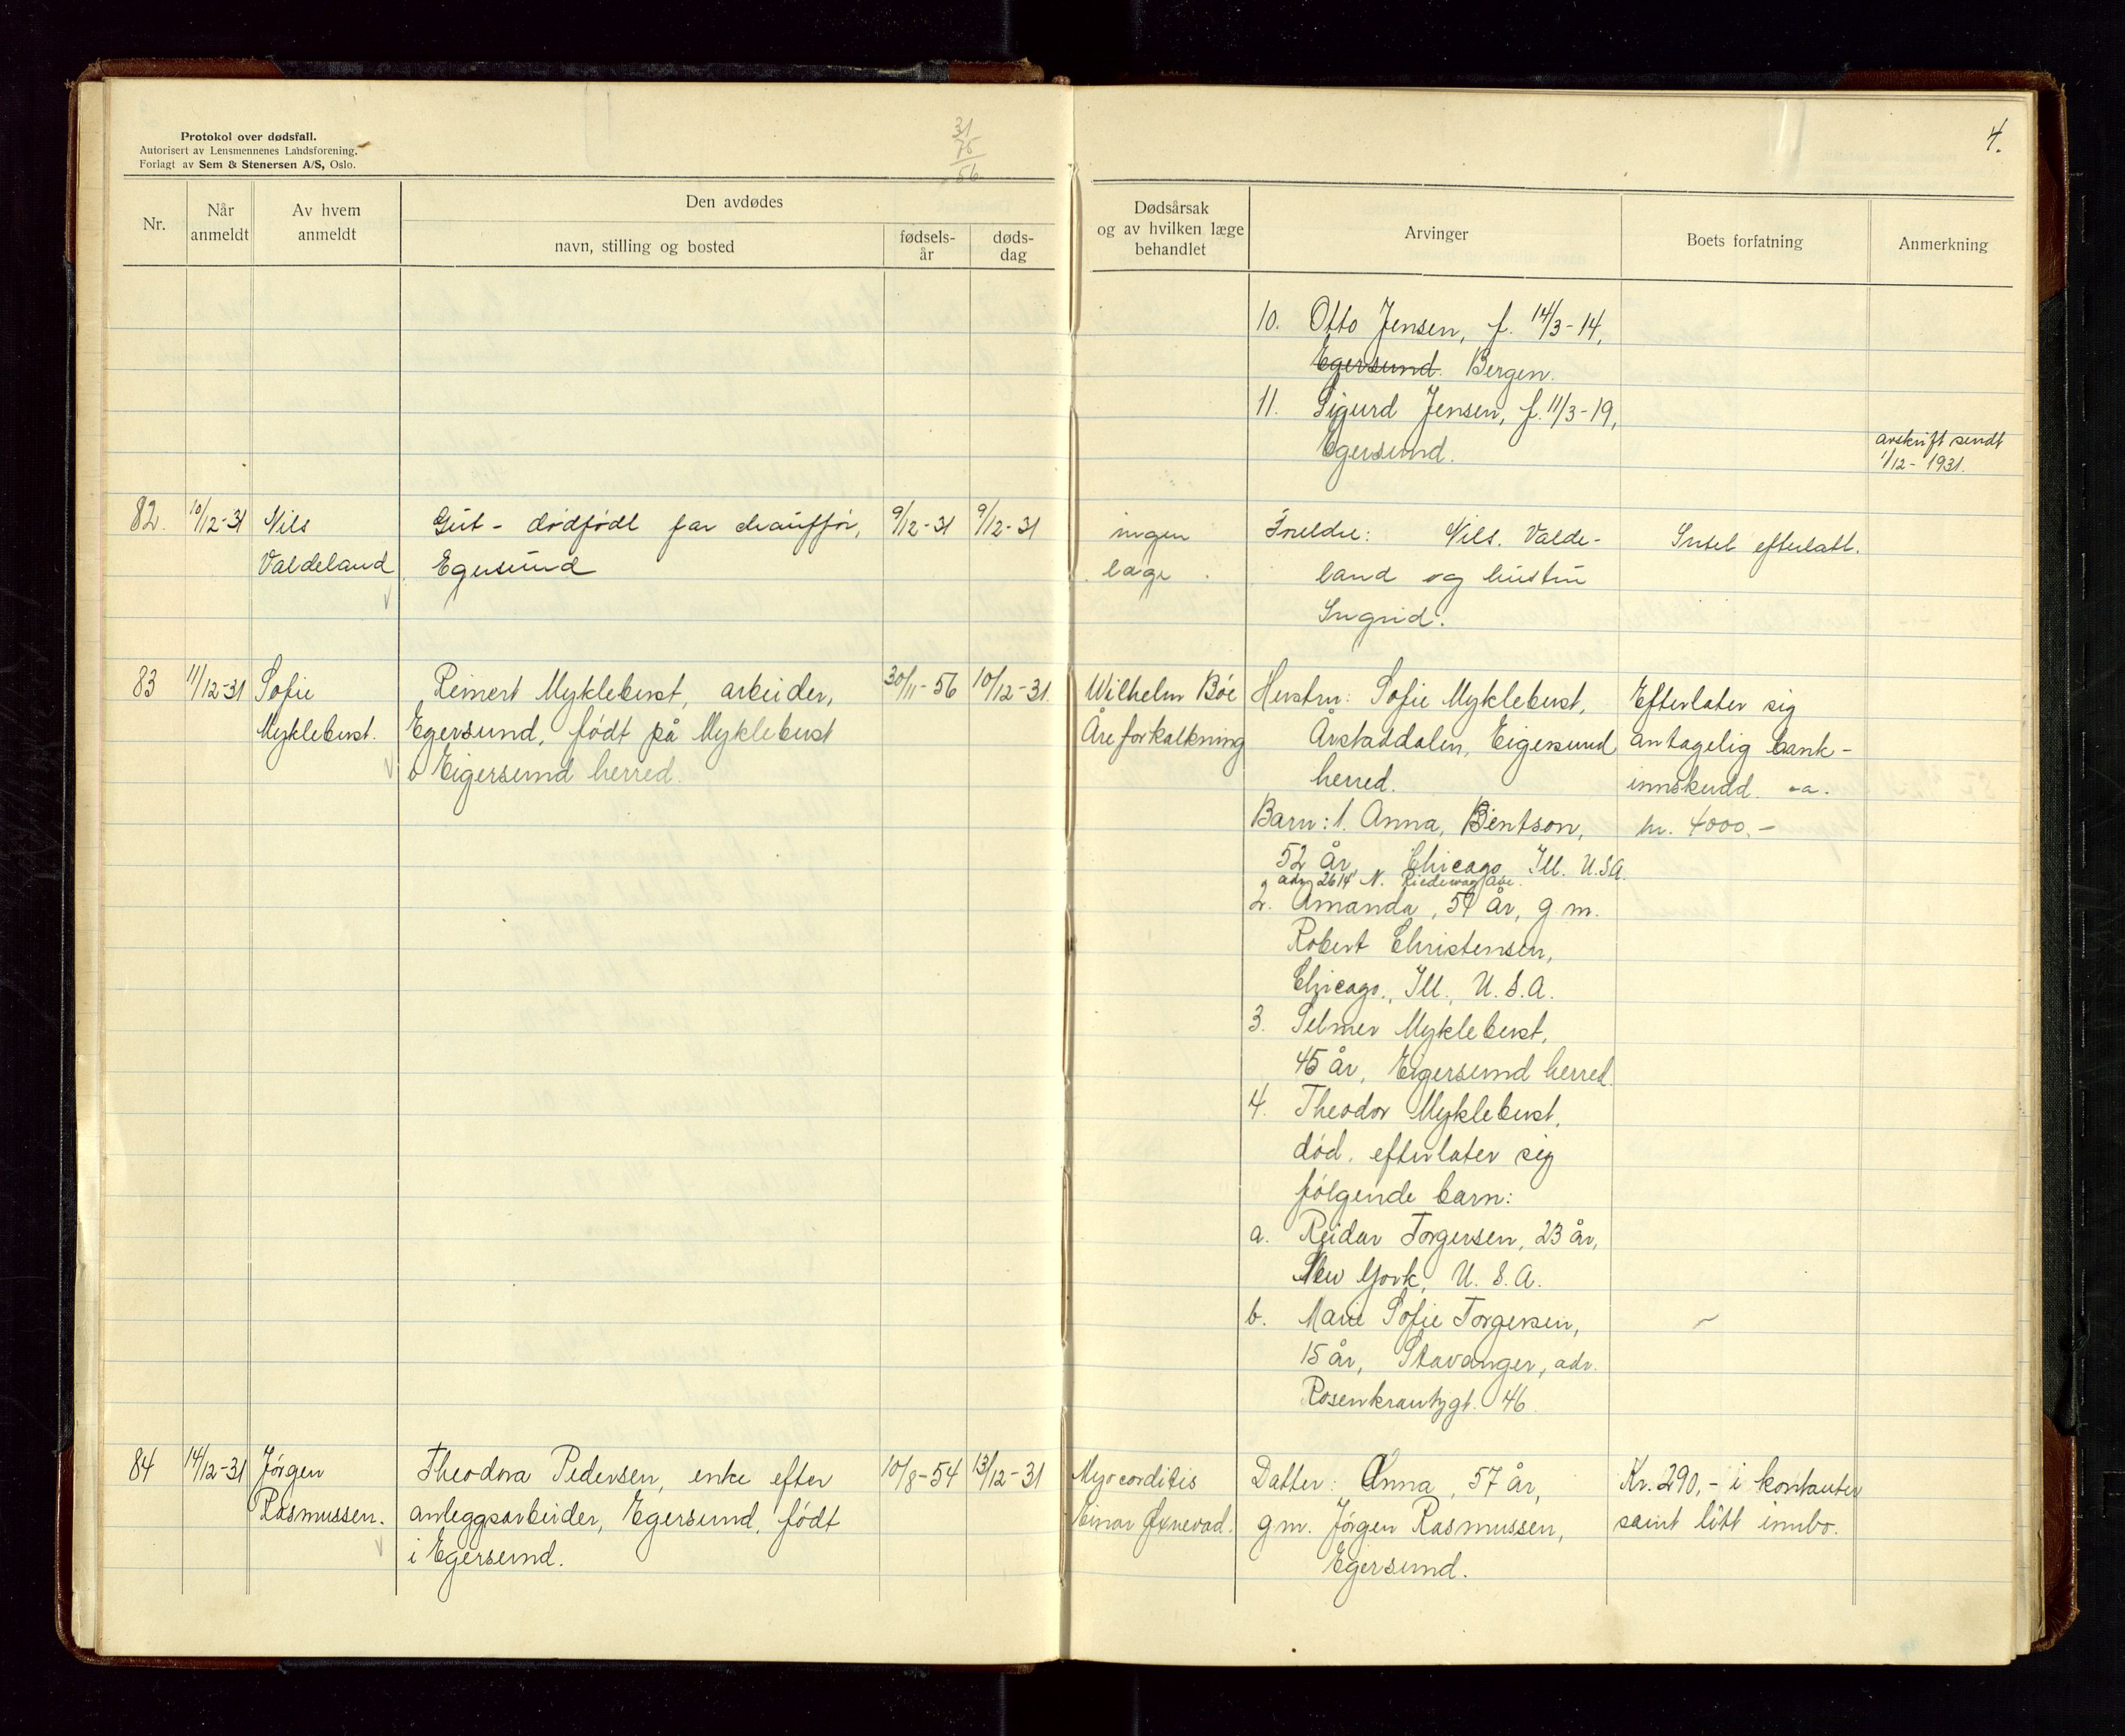 Protokol over dødsfall.
Autorisert av Lensmennenes Landsforening.
Forlagt av Sem & Stenersen A/S, Oslo.
31
75
56
4.
Nr.
Når anmeldt
Av hvem anmeldt
Den avdødes
navn, stilling og bosted
fødsels-år
døds-dag
Dødsårsak og av hvilken læge behandlet
Arvinger
Boets forfatning
Anmerkning
10. Otto Jensen, f. 14/3-14,
Egersund. Bergen.
11. Sigurd Jensen, f. 11/3-19,
Egersund.
avskrift sendt
1/12-1931.
82.
10/12-31
Nils
Valdeland
Gut - dødfødt far chauffør,
Egersund
9/12-31
9/12-31
ingen
læge
Foreldre: Nils. Valde-
land og hustru
Ingrid.
Intet efterlatt.
83
11/12-31
Sofie
Myklebust.
Reinert Myklebust, arbeider,
Egersund, født på Myklebust
i Eigersund herred.
30/11-56
10/12-31.
Wilhelm Böe
Åreforkalkning
Hustru: Sofie Myklebust,
Årstaddalen, Eigersund
herred.
Barn: 1. Anna, Bentson,
52 år, Chicago Ill. U.S.A.
adr. 2614 N. Ave.
2. Amanda, 51 år, g.m.
Robert Christensen,
Chicago, Ill., U.S.A.
3. Selmer Myklebust,
45 år, Eigersund herred.
4. Theodor Myklebust,
død, efterlater sig
følgende barn:
a. Reidar Torgersen, 23 år,
New York, U.S.A.
b. Marie Sofie Torgersen,
15 år, Stavanger, adr.
Rosenkrantzgt. 46
Efterlater sig
antagelig bank-
innskudd. ca.
kr. 4000.-
84
14/12-31
Jörgen
Rasmussen.
Theodora Pedersen, enke efter
anleggsarbeider, Egersund, født
i Egersund.
10/8-54
13/12-31
Myocorditis
Einar Øxnevad.
Datter: Anna, 57 år,
g.m. Jörgen Rasmussen,
Egersund.
Kr. 290,- i kontanter
samt litt innbo.